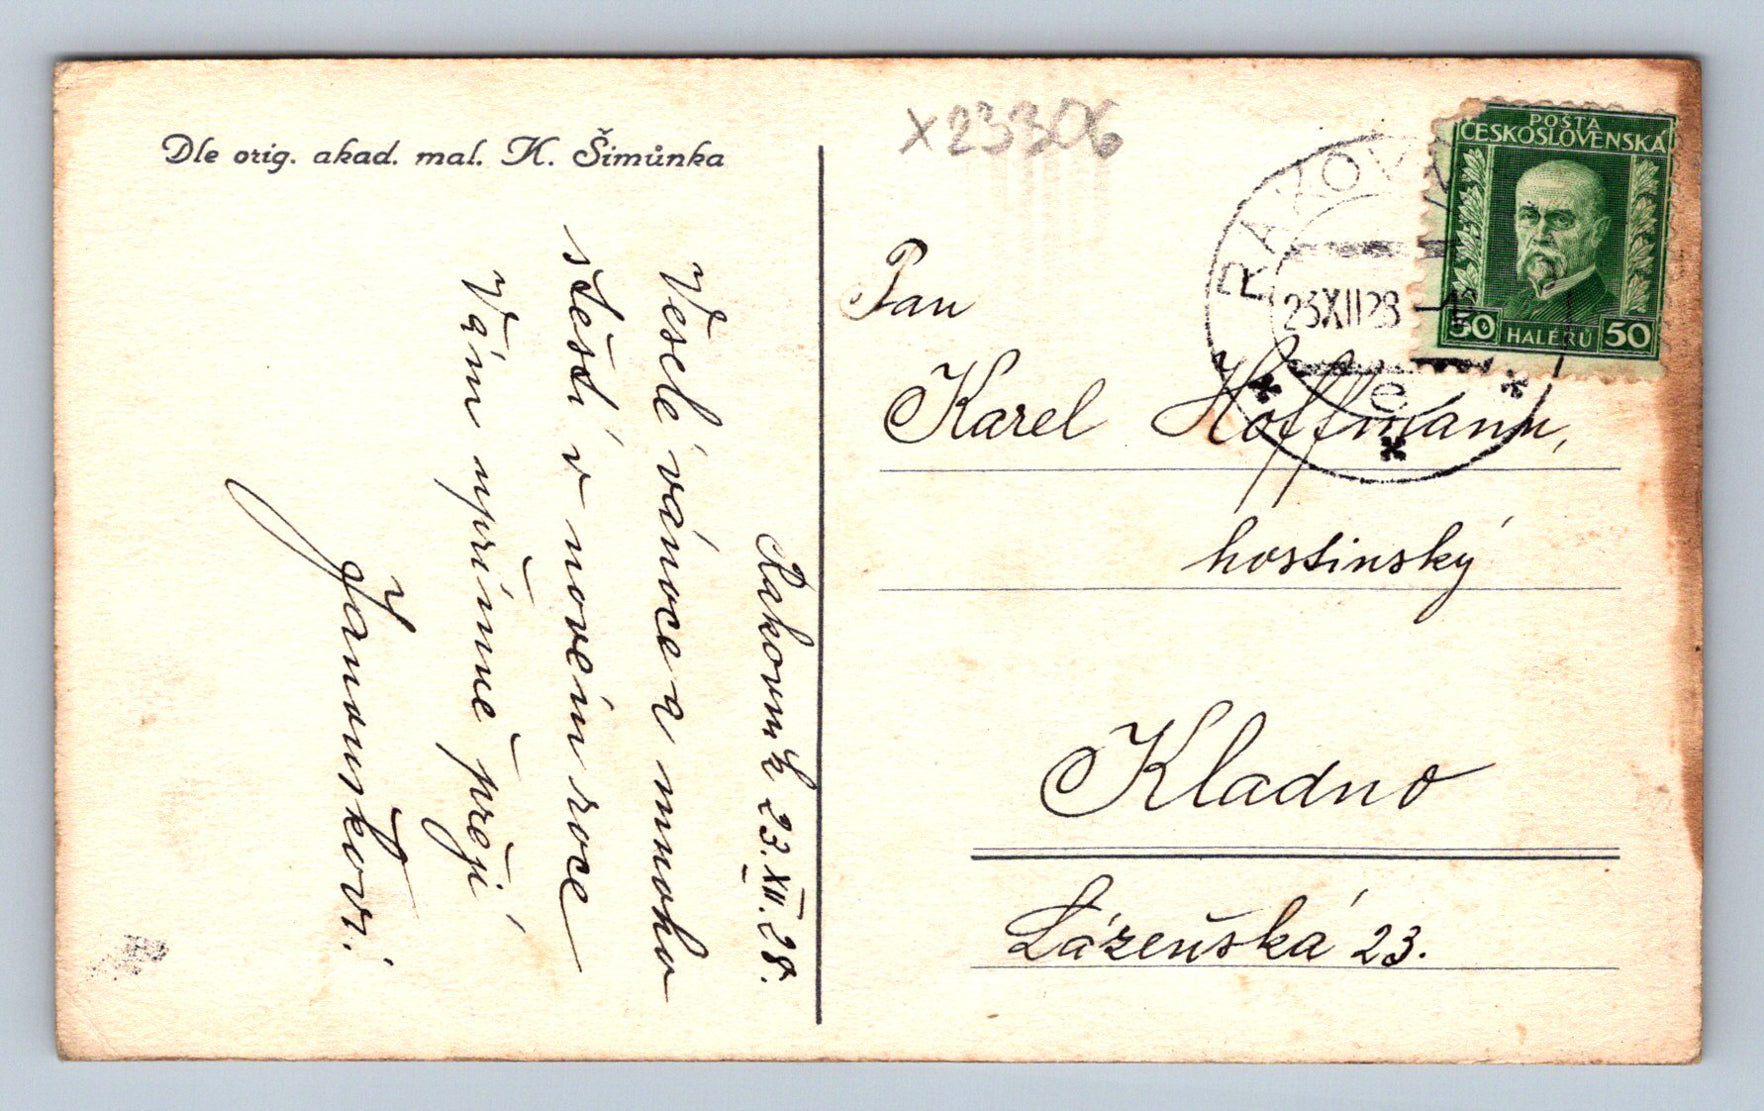 Dle orig. akad. mal. K. Šimůnka
Rakovník 23. XII. 28.
Veselé vánoce a mnoho
štěstí v novém roce
Vám upřímně přejí
Janouškovi.
X23306
POŠTA
ČESKOSLOVENSKÁ
50 HALÉŘŮ 50
RAKOV
23XII28 -12
e
Pan
Karel Hoffmann,
hostinský
Kladno
Lázeňská 23.